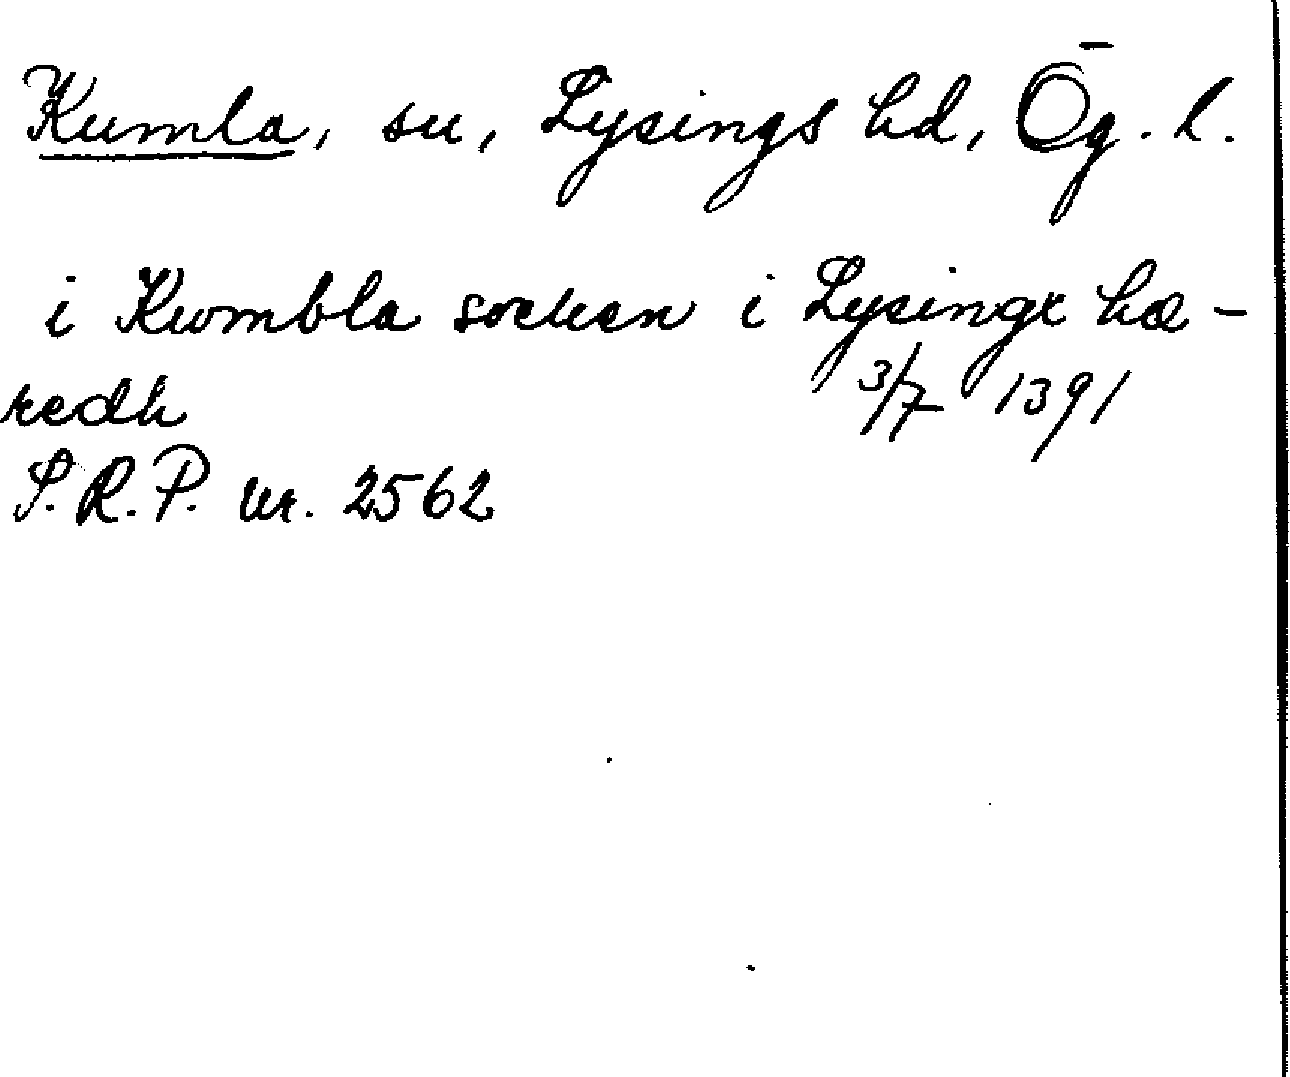 Kumla, sn, Lysings hd, Ög. l.
i Kwmbla socken i Lysinge hæ-
redh 3/7 1391
S.R.P. nr. 2562